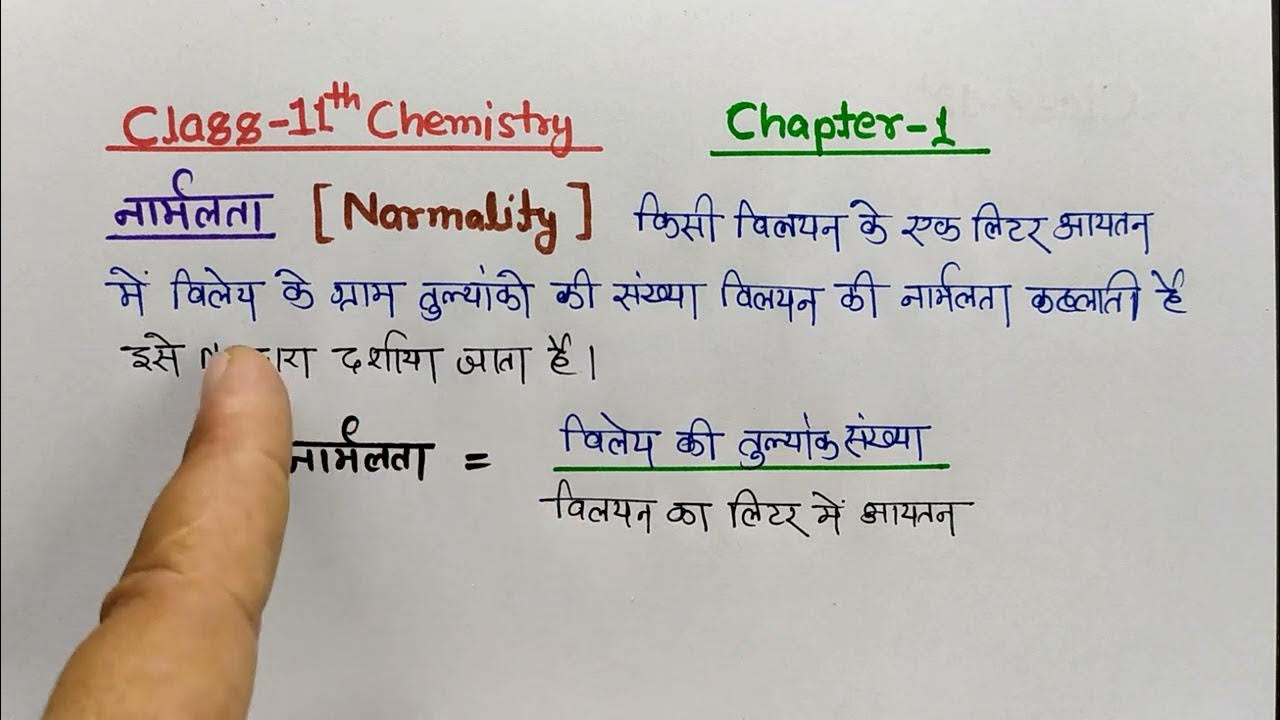 Class-11th Chemistry Chapter-1
नार्मलता [Normality] किसी विलयन के एक लिटर आयतन
में विलेय के ग्राम तुल्यांको की संख्या विलयन की नार्मलता कहलाती है
इसे दर्शाया जाता है।
नार्मलता = विलेय की तुल्यांक संख्या
विलयन का लिटर में आयतन